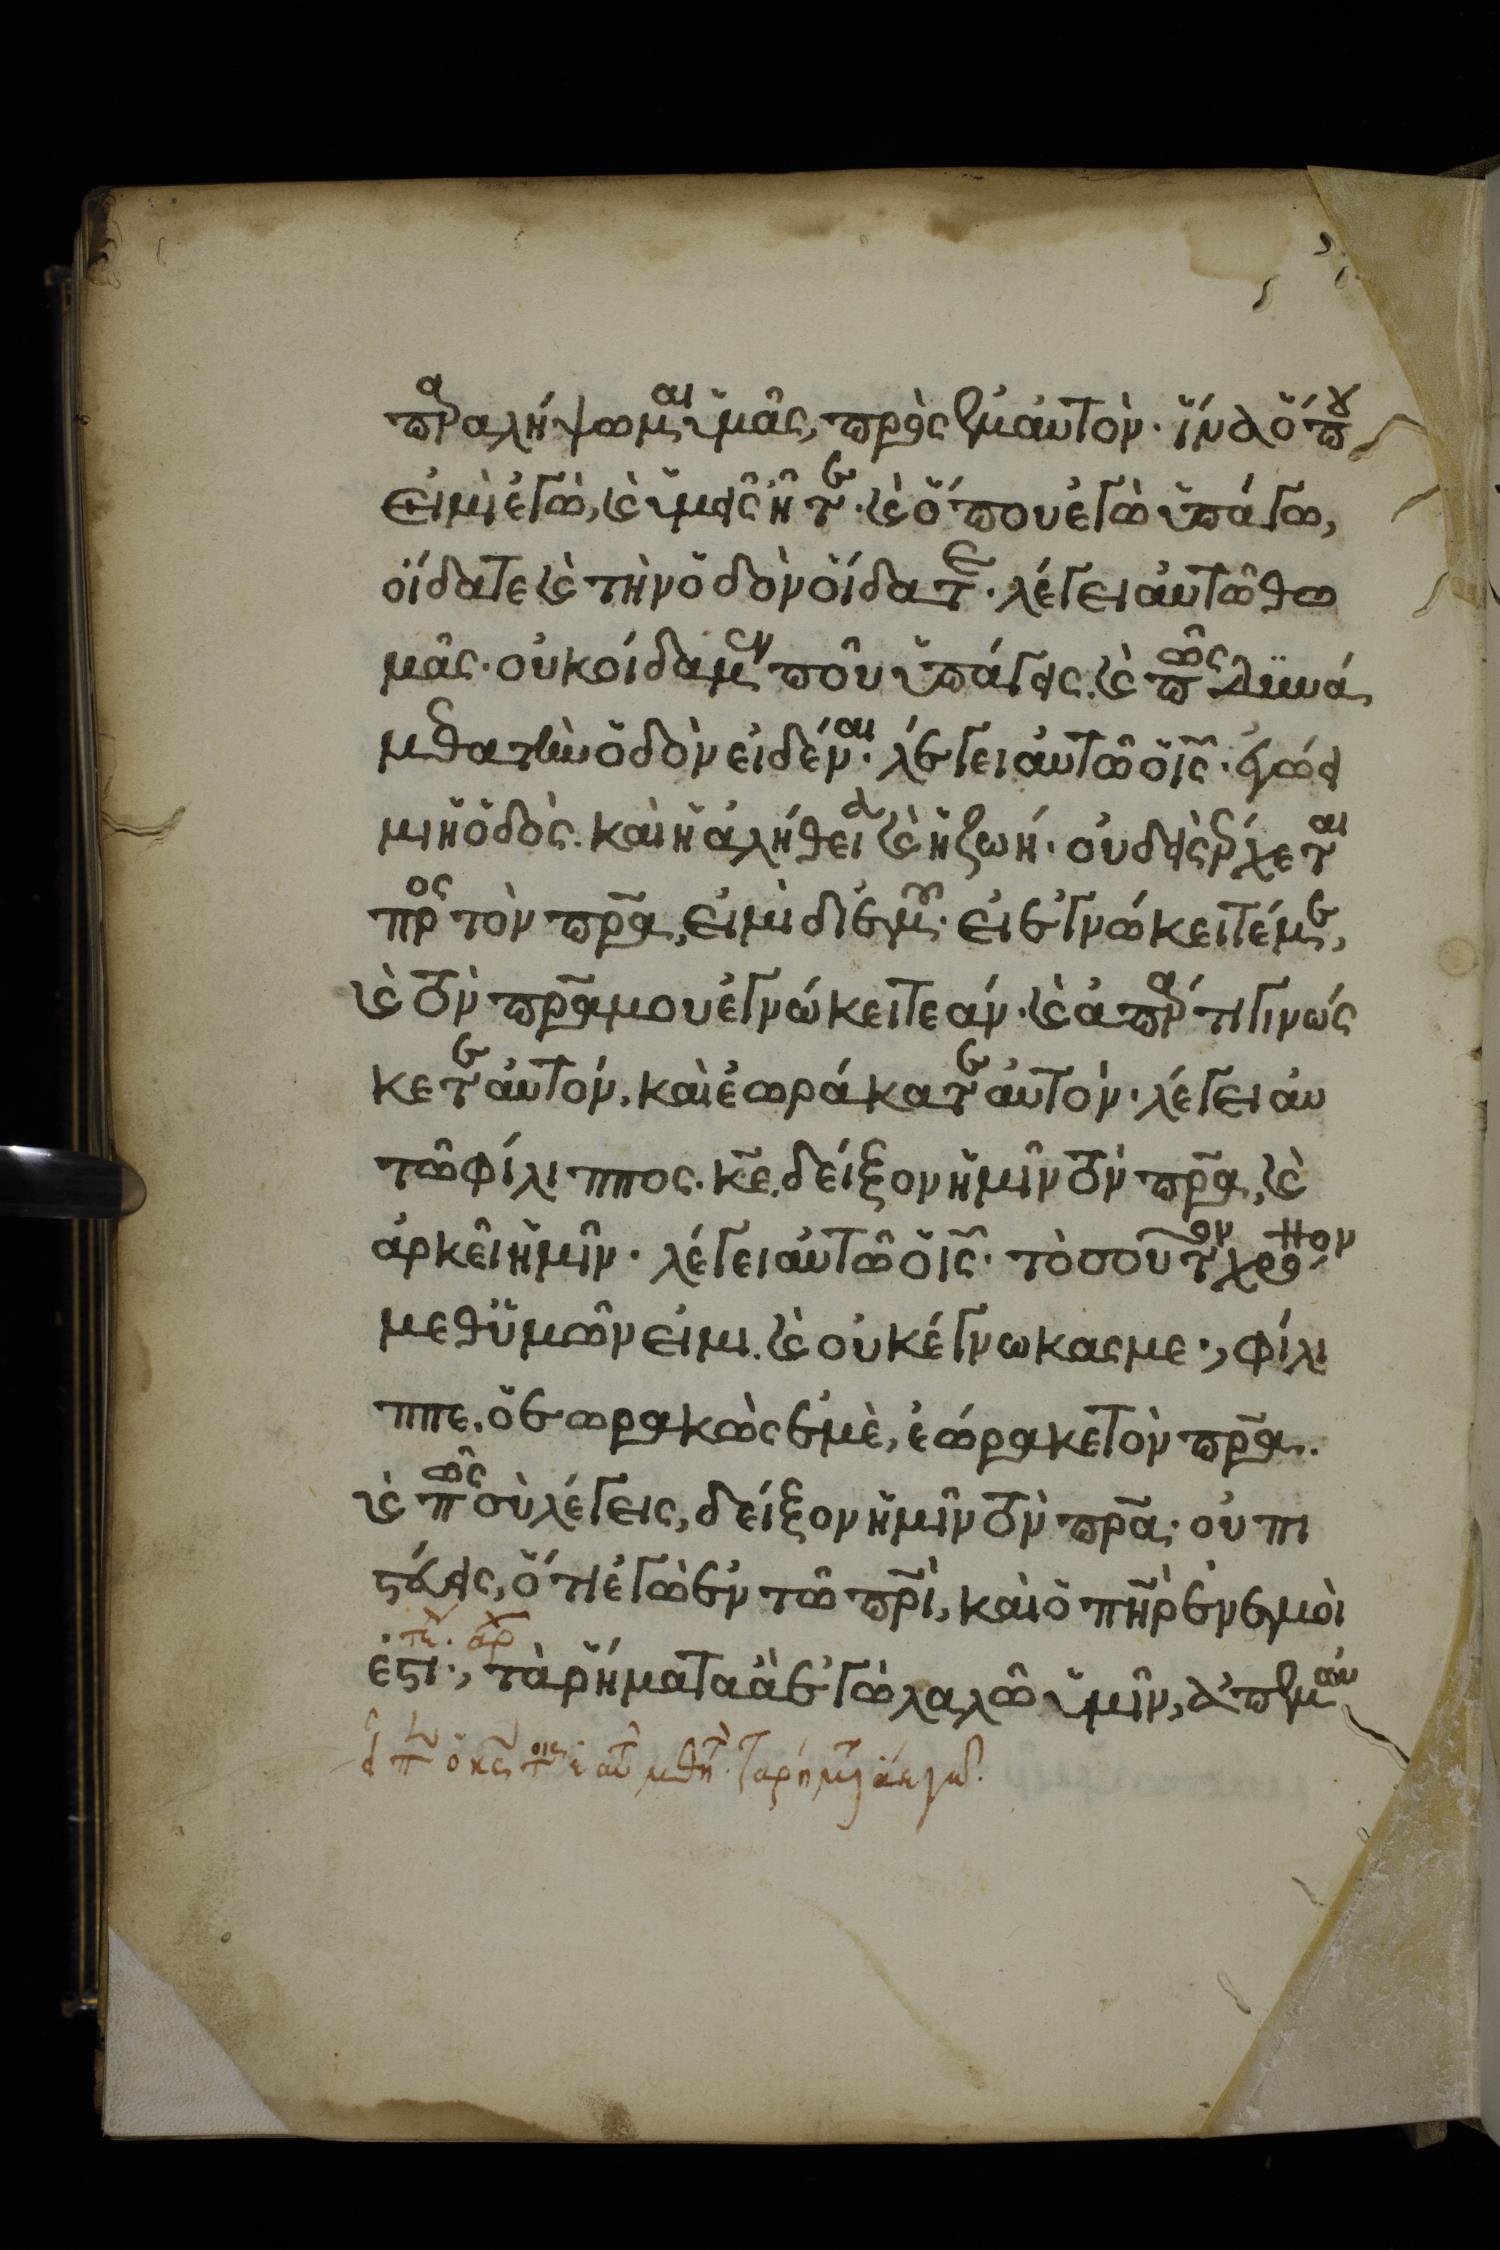 παραλήψωμαι ὑμᾶς, πρὸς ἐμαυτὸν· ἵνα ὅπου
εἰμὶ ἐγὼ, καὶ ὑμεῖς ἦτε· καὶ ὅπου ἐγὼ ὑπάγω,
οἴδατε καὶ τὴν ὁδὸν οἴδατε· λέγει αὐτῶ θω
μᾶς· οὐκ οίδαμεν ποῦ ὑπάγεις. καὶ πῶς δυνά
μεθα τὴν ὁδὸν εἰδέναι· λέγει αὐτῶ ὁ ις· ἐγώ εἰ
μι ἡ ὁδὸς. καὶ ἡ ἀλήθεια καὶ ἡ ζωή· οὐδεὶς ἔρχεται
πρὸς τὸν πρα, εἰ μὶ δι ἐμοῦ· εἰ ἐγνώκειτέ με,
καὶ τὸν πρα μου ἐγνώκειτε άν· καὶ ἀπάρτι γινώς
κετε αὐτόν, καὶ ἑωράκατε αὐτὸν· λέγει αὐ
τῶ φίλιππος· κε, δείξον ἡμῖν τὸν πρα, καὶ
ἀρκεῖ ἡμῖν· λέγει αὐτῶ ὁ ις· τὸσοῦτον χρόνον
μεθ ὑμῶν εἰμι. καὶ οὐκ έγνωκας με·, φίλι
ππε, ὁ ἑωρακὼς ἐμὲ, ἑώρακε τὸν πρα.
καὶ πῶς σὺ λέγεις, δείξον ἡμῖν τὸν πρα· οὐ πι
στεύεις, ὅτι ἐγὼ ἐν τῶ πρὶ, καὶ ὁ πηρ ἐν ἐμοὶ
ἐστι·, τὰ ῥήματα ἃ ἐγὼ λαλῶ ὑμῖν, ἀπ ἐμαυ
εἶπεν ὁ κς τοις ἑαυτοῦ μθητ· τα ρήματα ἃ εγὼ